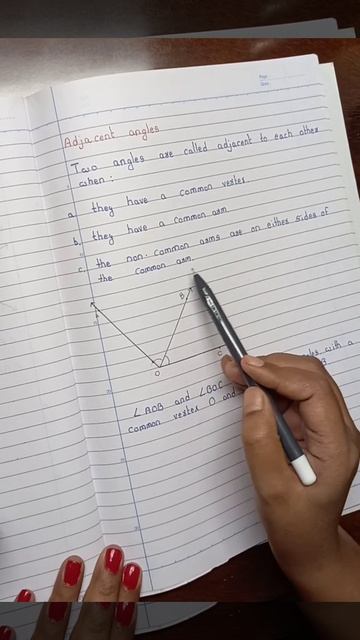 Page
Date
Adjacent angles
Two angles are called adjacent to each other
when:
a. they have a common vertex
b. they have a common arm
c. the non-common arms are on either sides of
the common arm.
B
O
C
∠AOB and ∠BOC with a
common vertex O and B